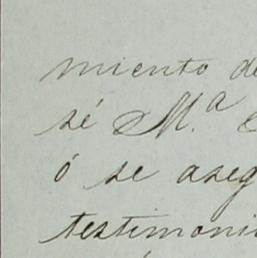 miento de
sé M.ª
ó se aseg
testimoni